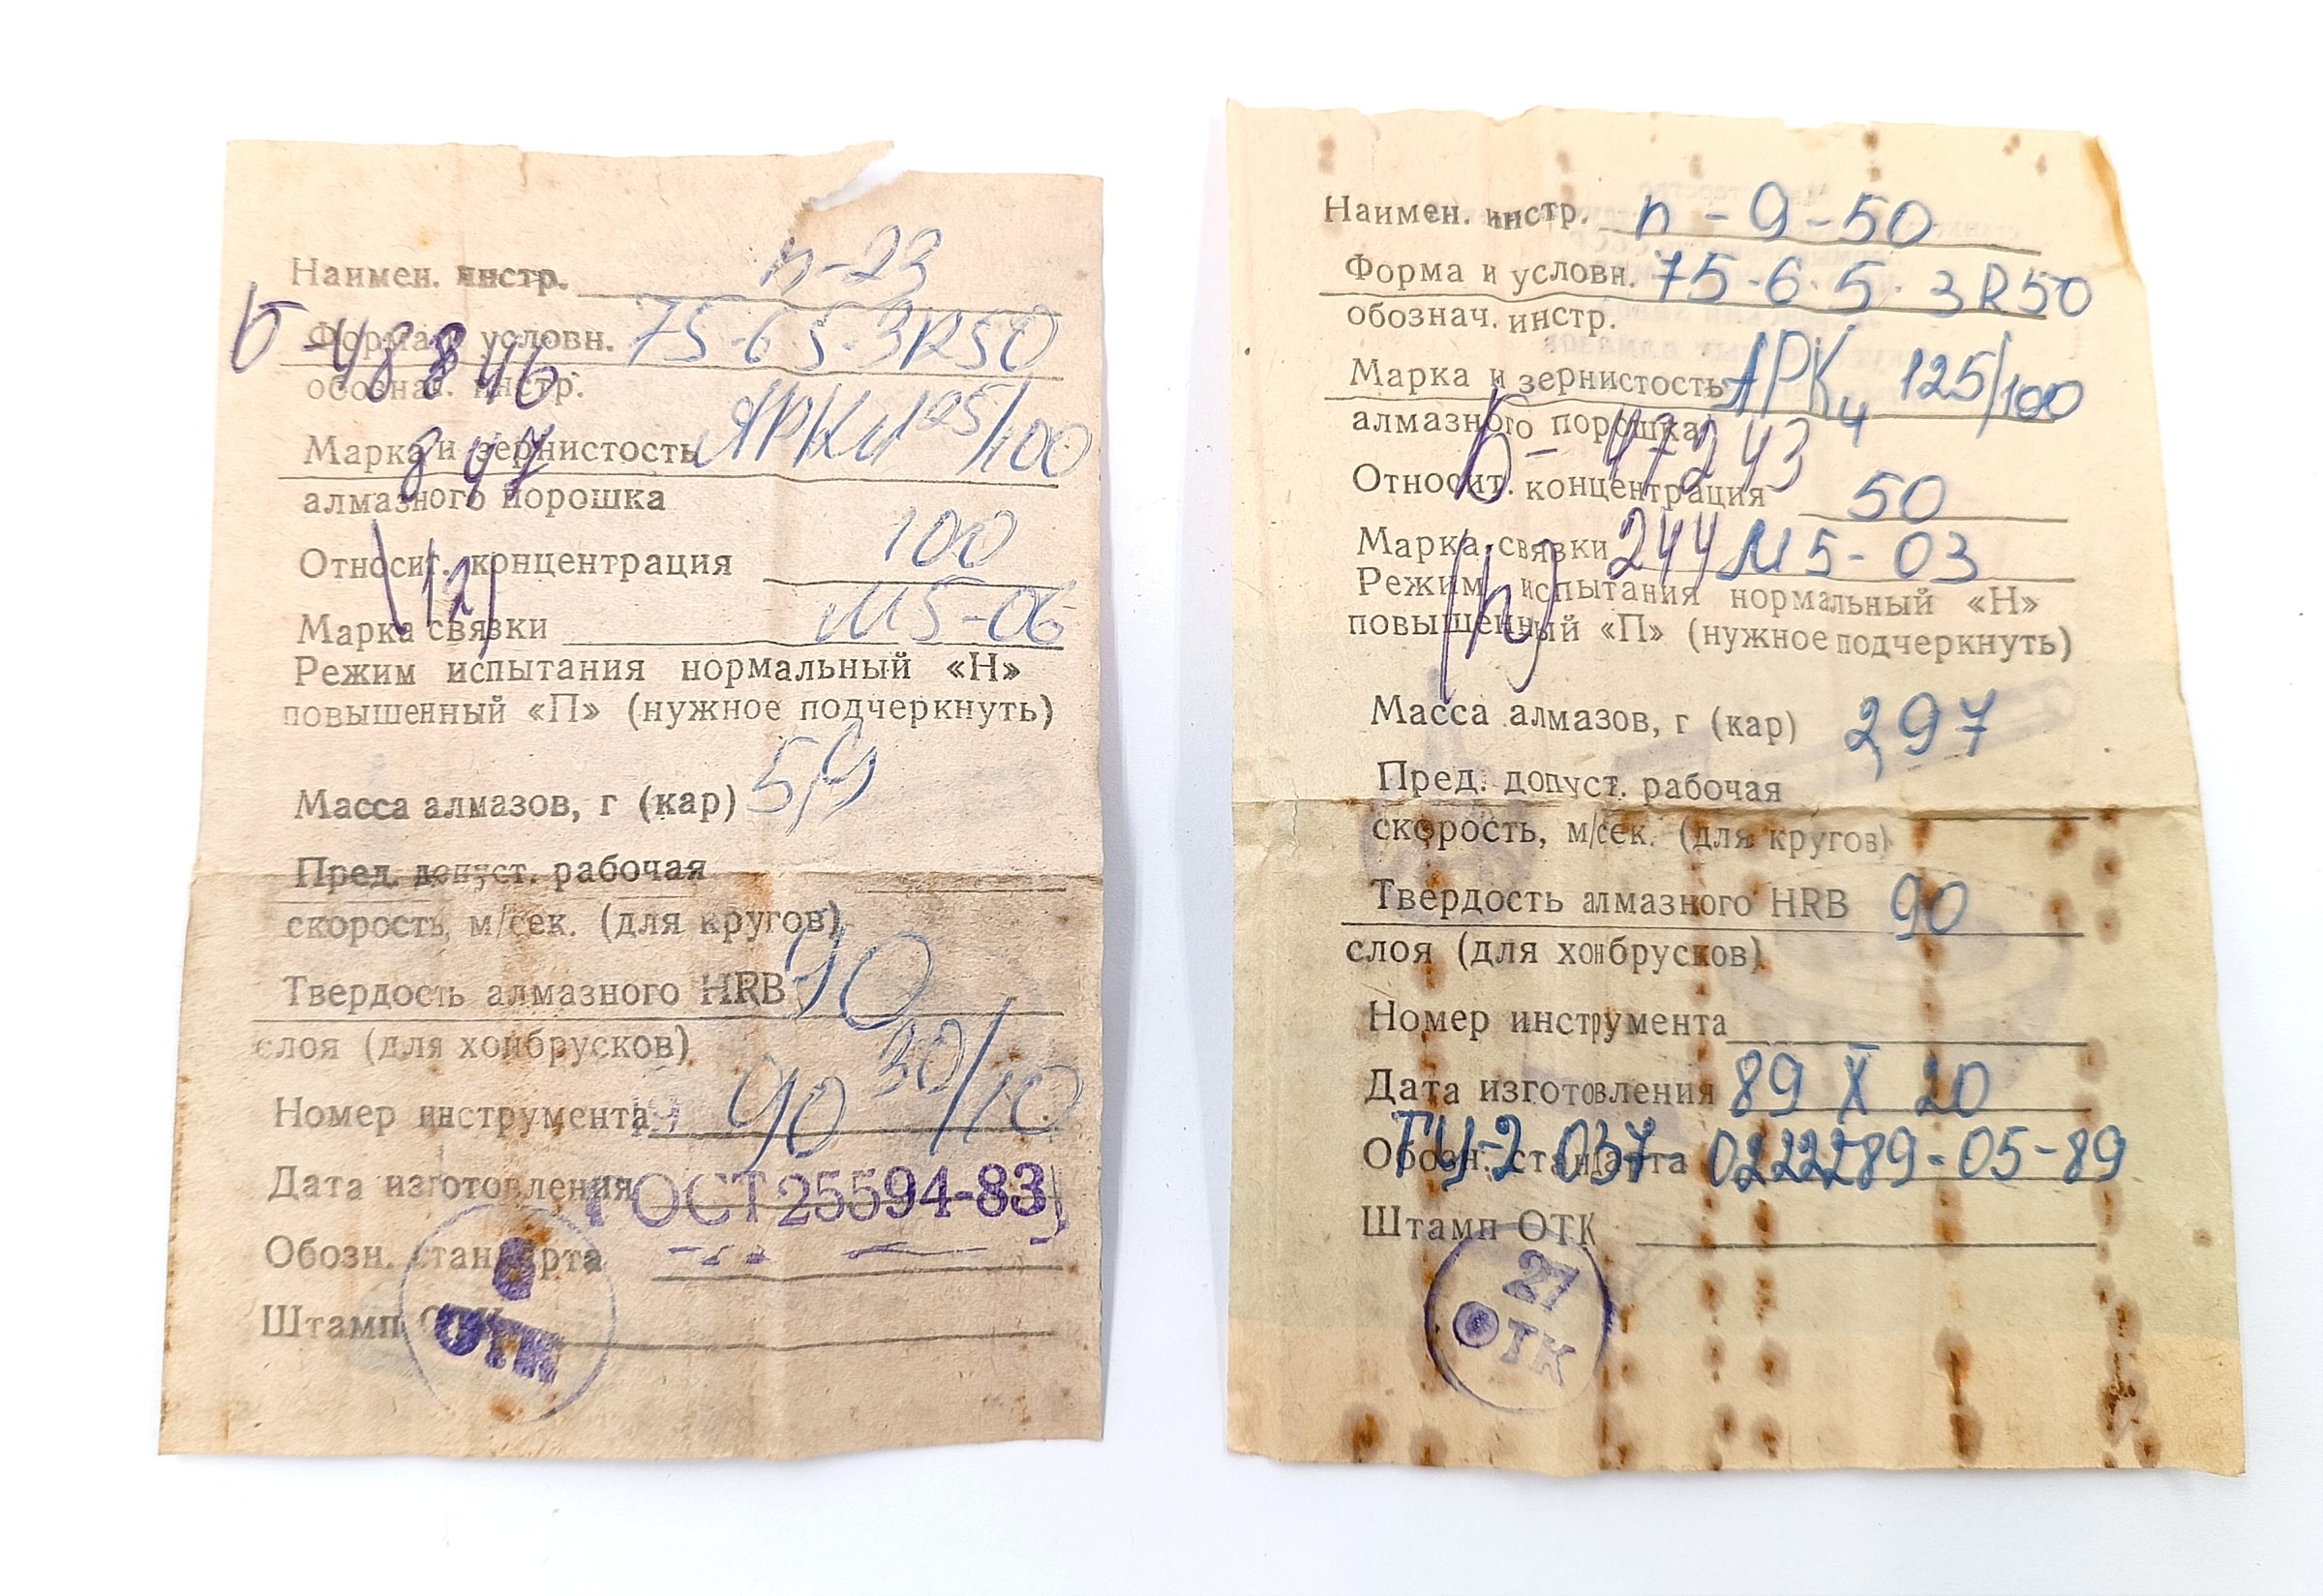 Наимен. инстр. п-23
Форма и условн. 75-6 5-3R50
обознач. инстр.
Б-48846
Марка и зернистость АРК4 125/100
847
алмазного порошка
Относит. концентрация 100
(12)
Марка связки М5-06
Режим испытания нормальный «Н»
повышенный «П» (нужное подчеркнуть)
Масса алмазов, г (кар)
Пред. допуст. рабочая
скорость, м/сек. (для кругов)
Твердость алмазного HRB 90
слоя (для хонбрусков)
Номер инструмента 90 30/10
Дата изготовления ГОСТ 25594-83
Обозн. стандарта
Штамп ОТК
ОТК
Наимен. инстр. п-9-50
Форма и условн. 75-6-5-3R50
обознач. инстр.
Марка и зернистость АРК4 125/100
алмазного порошка
Б-47243
Относит. концентрация 50
Марка связки 244 М5-03
Режим испытания нормальный «Н»
повышенный «П» (нужное подчеркнуть)
Масса алмазов, г (кар) 297
Пред. допуст. рабочая
скорость, м/сек. (для кругов)
Твердость алмазного HRB 90
слоя (для хонбрусков)
Номер инструмента
Дата изготовления 89 X 20
Обозн. стандарта ТУ-2-037-0222289-05-89
Штамп ОТК
27
ОТК